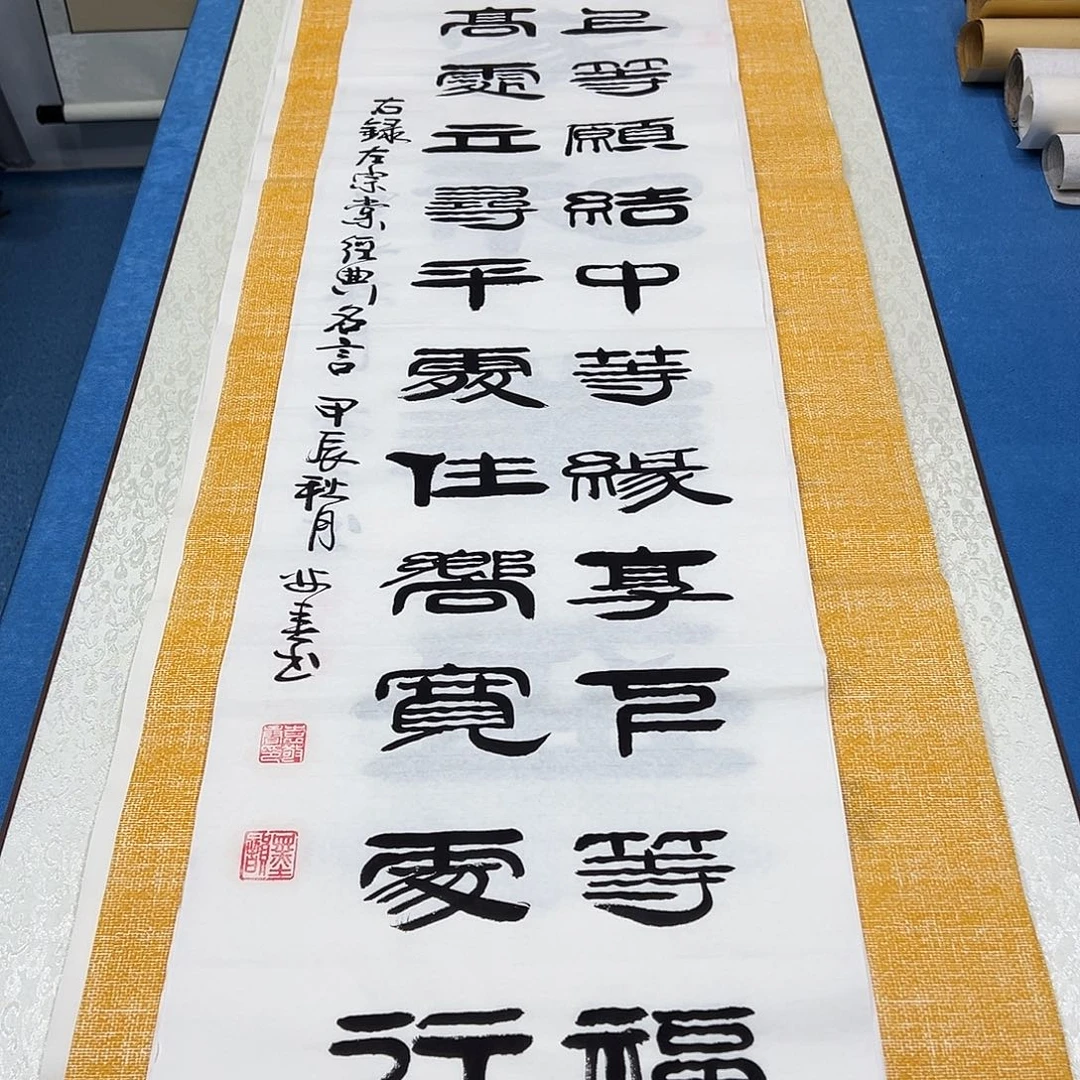 上等願結中等緣享下等福
高處立尋平處住嚮寬處行
右録左宗棠經典名言 甲辰秋月